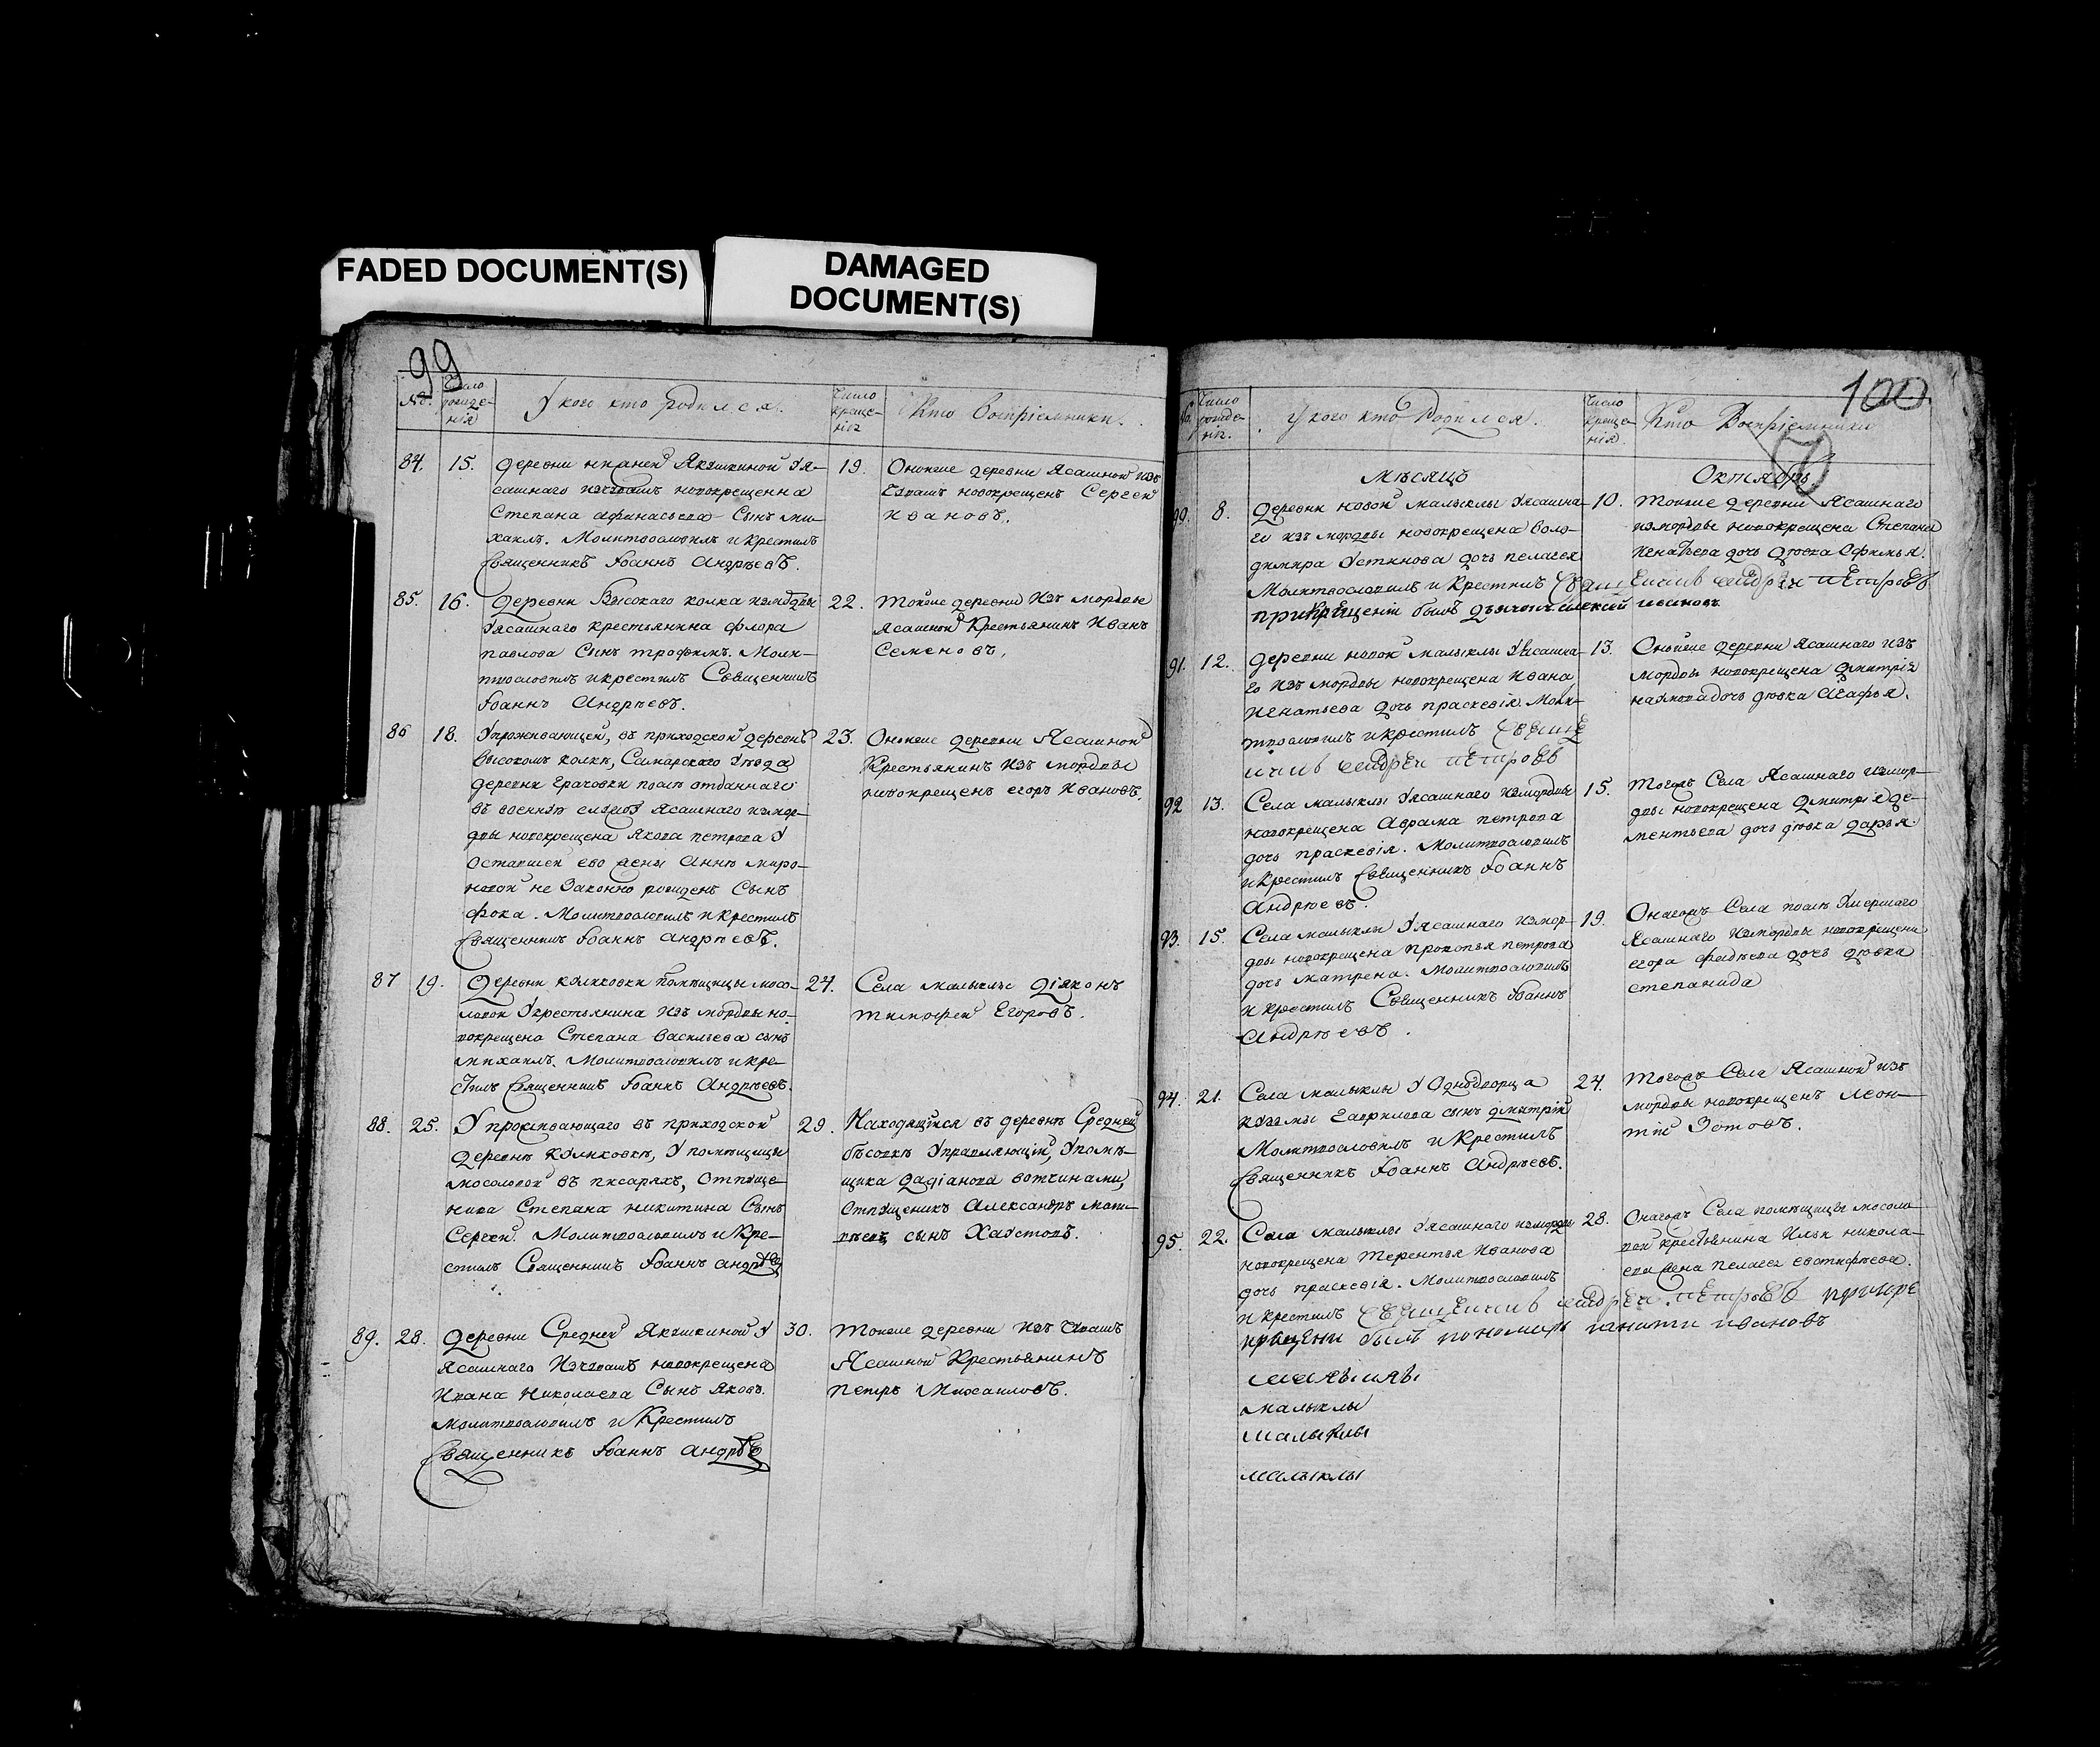 FADED DOCUMENT(S)
DAMAGED
DOCUMENT(S)
99
№.
Число
рожде-
нія
У кого кто родился.
Число
креще-
нія
Кто воспріемники.
84. 15.
деревни нижней Якушкиной у я-
сашнаго изчувашъ новокрещенна
Степана афанасьева Сынъ ми-
хаилъ. Молитвословилъ и крестилъ
Священникъ Іоаннъ Андреевъ.
19.
Оноиже деревни Ясашной изъ
Чувашъ новокрещенъ Сергей
Ивановъ.
85. 16.
деревни Высокаго колка изморды
Уясашнаго крестьянина флора
павлова Сынъ трофимъ. Моли-
твословилъ икрестилъ Священникъ
Іоаннъ Андреевъ.
22.
Тоиже деревни Изъ мордвы
Ясашной Крестьянинъ Иванъ
Семеновъ.
86 18.
Упроживающей, въ приходской деревнѣ
высокомъ колкѣ, Самарскаго Уѣзда
деревни Ерачовки послѣ отданнаго
въ военную службу Ясашнаго измор-
двы новокрещена Якова петрова У
оставшей ево жены Анны миро-
новой не Законно рожденъ Сынъ
фока. Молитвословилъ и крестилъ
Священникъ Іоаннъ андреевъ.
23.
Оноиже деревни Ясашной
Крестьянинъ Изъ мордвы
новокрещенъ егоръ Ивановъ.
87 19.
Деревни куликовки помѣщицы мосо-
ловой Укрестьянина Изъ мордвы но-
вокрещена Степана васильева сынъ
михаилъ. Молитвословилъ икре-
стилъ Священникъ Іоаннъ Андреевъ.
24.
Села малыклы Діяконъ
тимофей Егоровъ.
88. 25.
У проживающаго въ приходской
деревнѣ куликовки, У помѣщицы
мосоловой въ писаряхъ, Отпуще-
ника Степана никитина Сынъ
Сергей. Молитвословилъ и кре-
стилъ Священникъ Іоаннъ андреевъ
29.
Находящійся въ деревнѣ Средней
бѣсовкѣ Управляющій, Упомѣ-
щика дадіанова вотчинами,
Отпущеникъ Александръ матв-
ѣевъ сынъ Хаустовъ.
89. 28.
деревни Средней Якушкиной У
Ясашнаго Изчувашъ новокрещена
Ивана Николаева Сынъ яковъ.
молитвословилъ и Крестилъ
Священникъ Іоаннъ андреевъ
30.
Тоиже деревни Изъ Чувашъ
Ясашной Крестьянинъ
Петръ Михаиловъ.
100
Число
рожде-
нія.
У кого кто Родился.
Число
креще-
нія.
Кто Воспріемники
Мѣсяцъ
Октябрь
90. 8.
Деревни новой малыклы Уясашна-
го изъ мордвы новокрещена воло-
димира Устинова дочь пелагея
Молитвословилъ и Крестилъ Священникъ андреи петровъ
прикрещеніи былъ дьячокъ алексей ивановъ
10.
Тоиже деревни Ясашнаго
измордвы новокрещена Степана
игнатьева дочь дѣвка Офимья.
91. 12.
деревни новой малыклы Уясашна-
го Изъ мордвы новокрещена Ивана
Игнатьева дочь праскевія. Моли-
твословилъ икрестилъ Свяще
нникъ андреи петровъ
13.
Оноиже деревни Ясашнаго изъ
мордвы новокрещена дмитрія
наумова дочь дѣвка агафья.
92 13.
Села малыклы Уясашнаго измордвы
новокрещена Аврама петрова
дочь праскевія. Молитвословилъ
икрестилъ Священникъ Іоаннъ
Андреевъ.
15.
Тогожъ Села Ясашнаго измор-
двы новокрещена Дмитрія де-
ментьева дочь дѣвка дарья.
93. 15.
Села малыклы Уясашнаго измор-
двы новокрещена прокопья петрова
дочь матрена. Молитвословилъ
и крестилъ Священникъ Іоаннъ
Андреевъ.
19.
Онагожъ Села послѣ Умершаго
Ясашнаго Измордвы новокрещена
егора фадѣева дочь дѣвка
степанида
94. 21.
Села малыклы У Однодворца
кузмы Гаврилова сынъ дмитрій
Молитвословилъ и Крестилъ
Священникъ Іоаннъ Андреевъ.
24.
Тогожъ Села Ясашной изъ
мордвы новокрещенъ Леон-
тій Зотовъ.
95. 22.
Села малыклы Уясашнаго измордвы
новокрещена Терентья Иванова
дочь праскевія. Молитвословилъ
и крестилъ Священникъ андреи петровъ прикре
крещени былъ пономарь ивановъ
28.
Онагожъ Села помѣщицы мосоло-
вой крестьянина Ильи никола-
ева жена пелагея евстифѣева.
малыклы
малыклы
малыклы